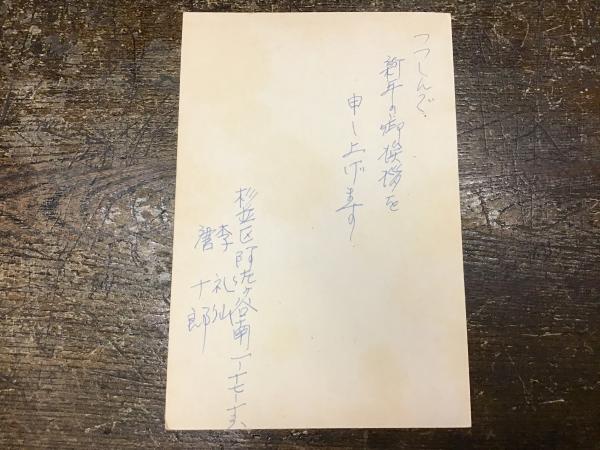 つつしんで
新年の御挨拶を
申し上げます
杉並区阿佐ヶ谷南一ー十七ー十六
李 礼仙
唐 十郎